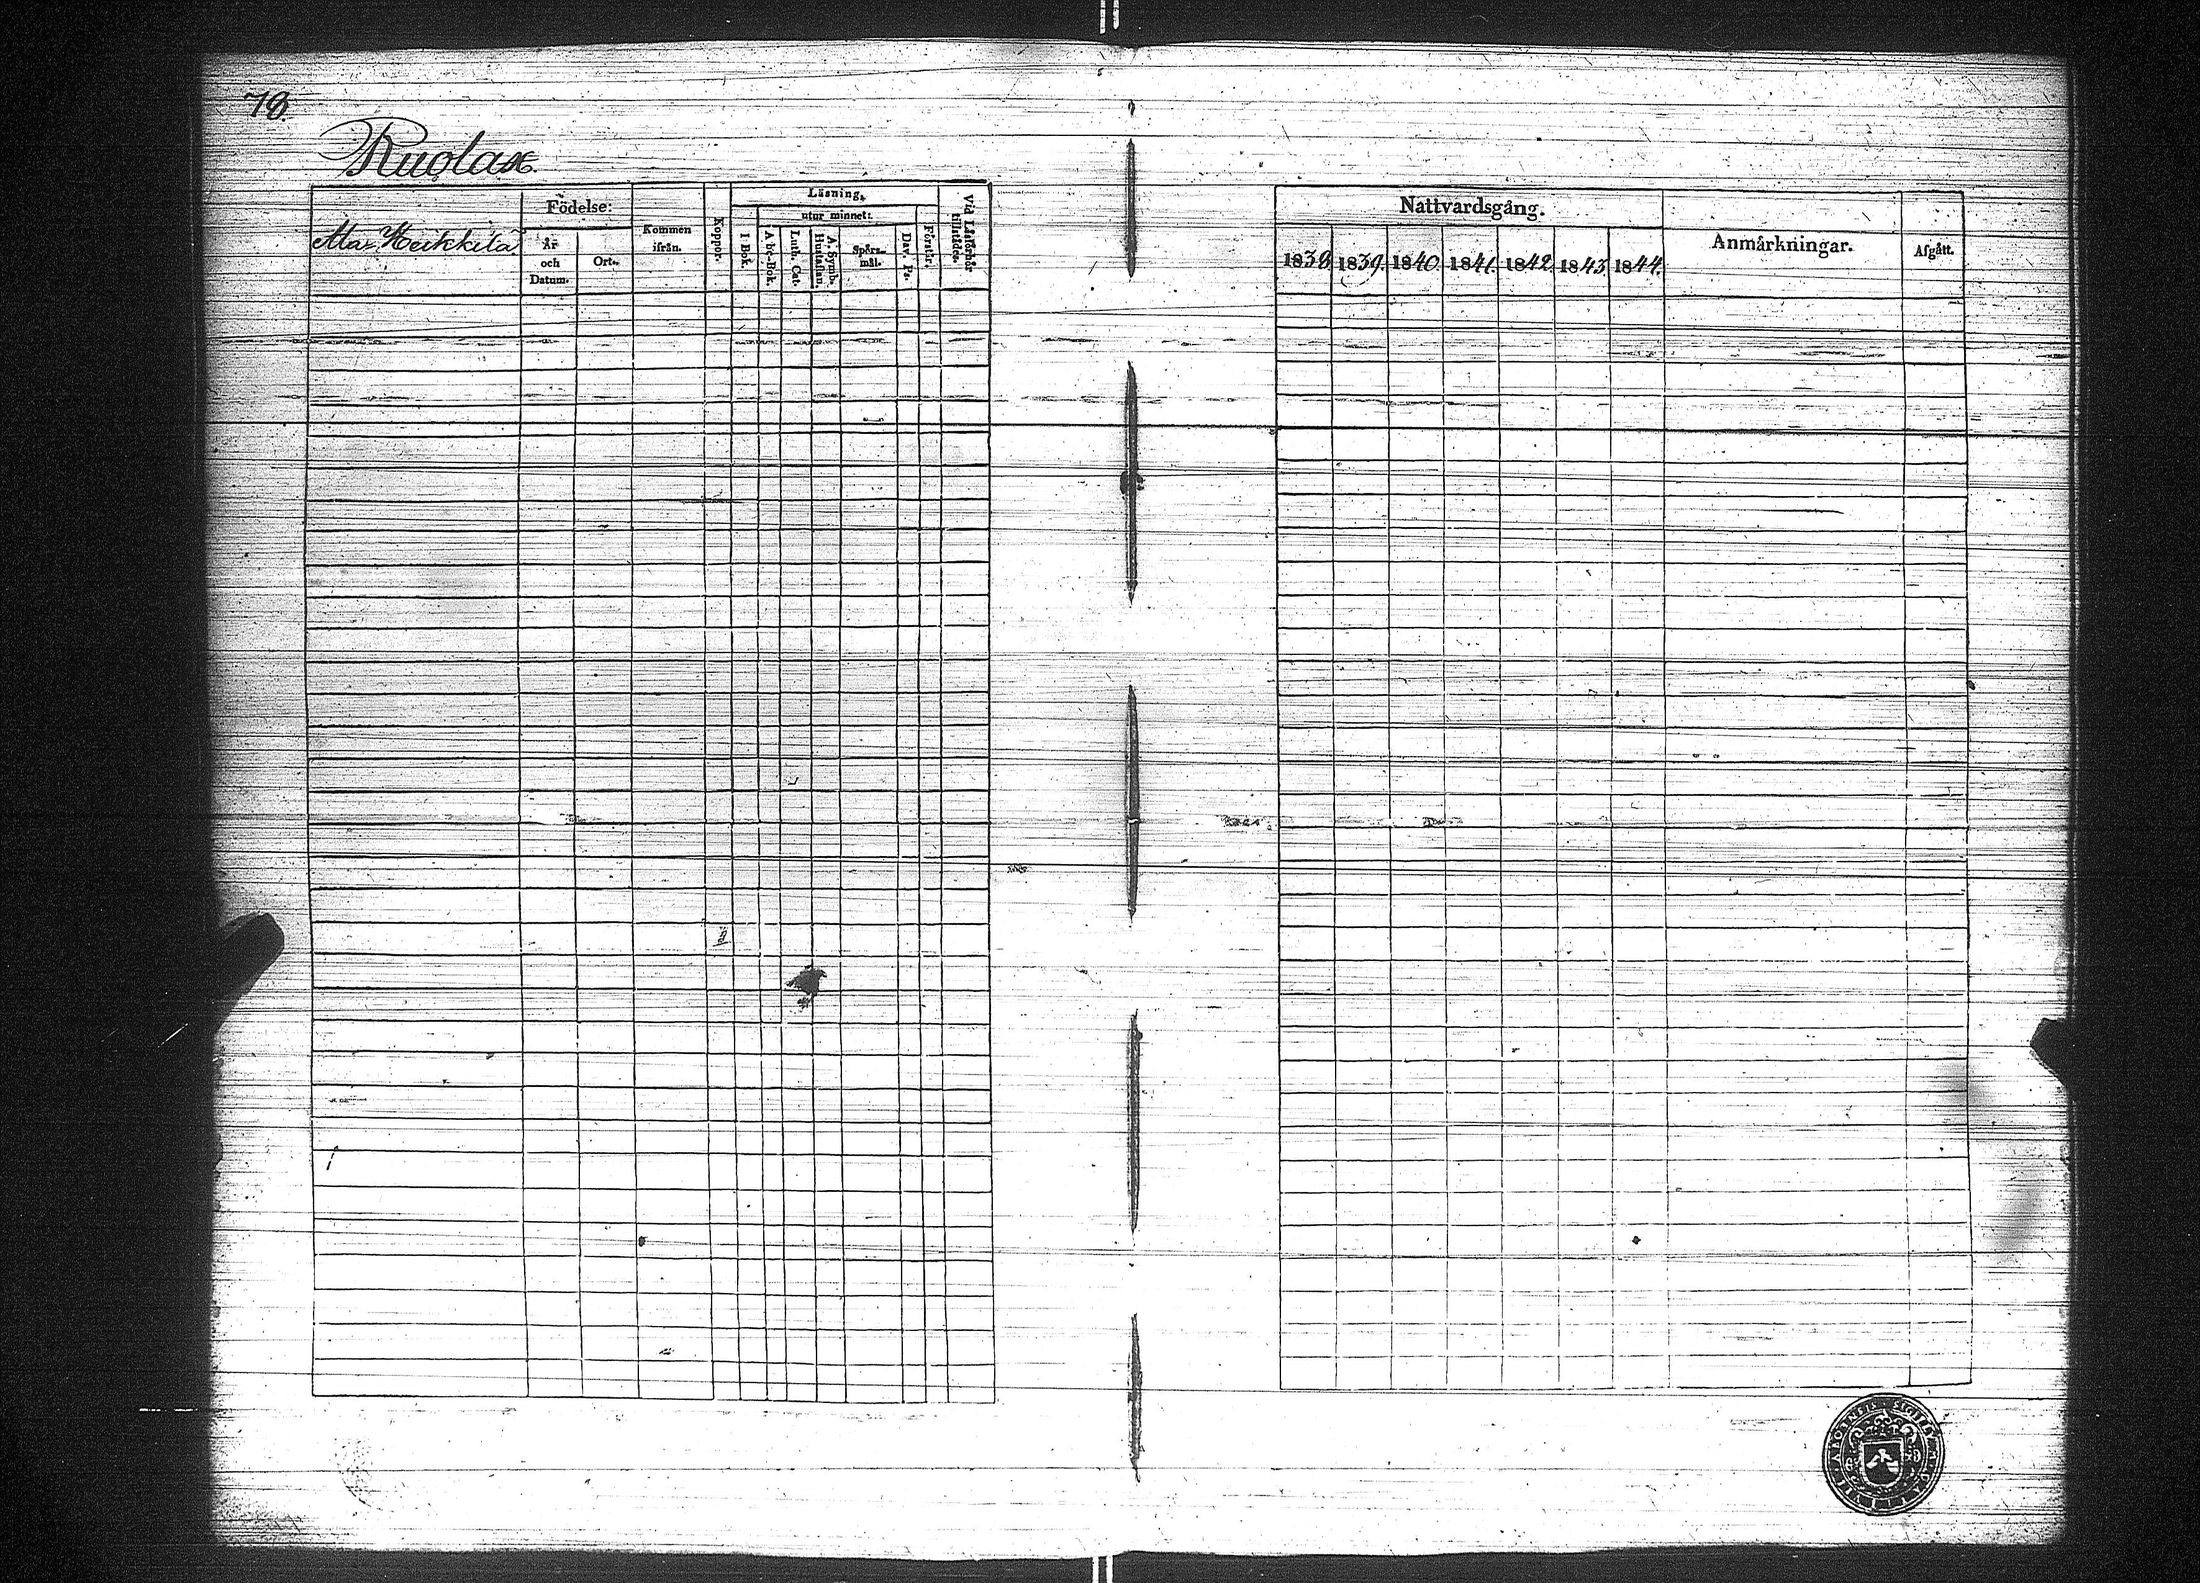 78.
Kuolax.
Ala-Heikkilä
Födelse:
År
och
Datum.
Ort.
Kommen
ifrån.
Koppor.
Läsning,
utur minnet:
I Bok.
A bc-Bok.
Luth. Cat.
A. Symb.
Hustaflan.
Spörs-
mål.
Dav. Ps.
Förstår.
Vid Läsförhör
tillstädes.
Nattvardsgång.
1838 1839. 1840 1841. 1842 1843 1844.
Anmärkningar.
Afgått.